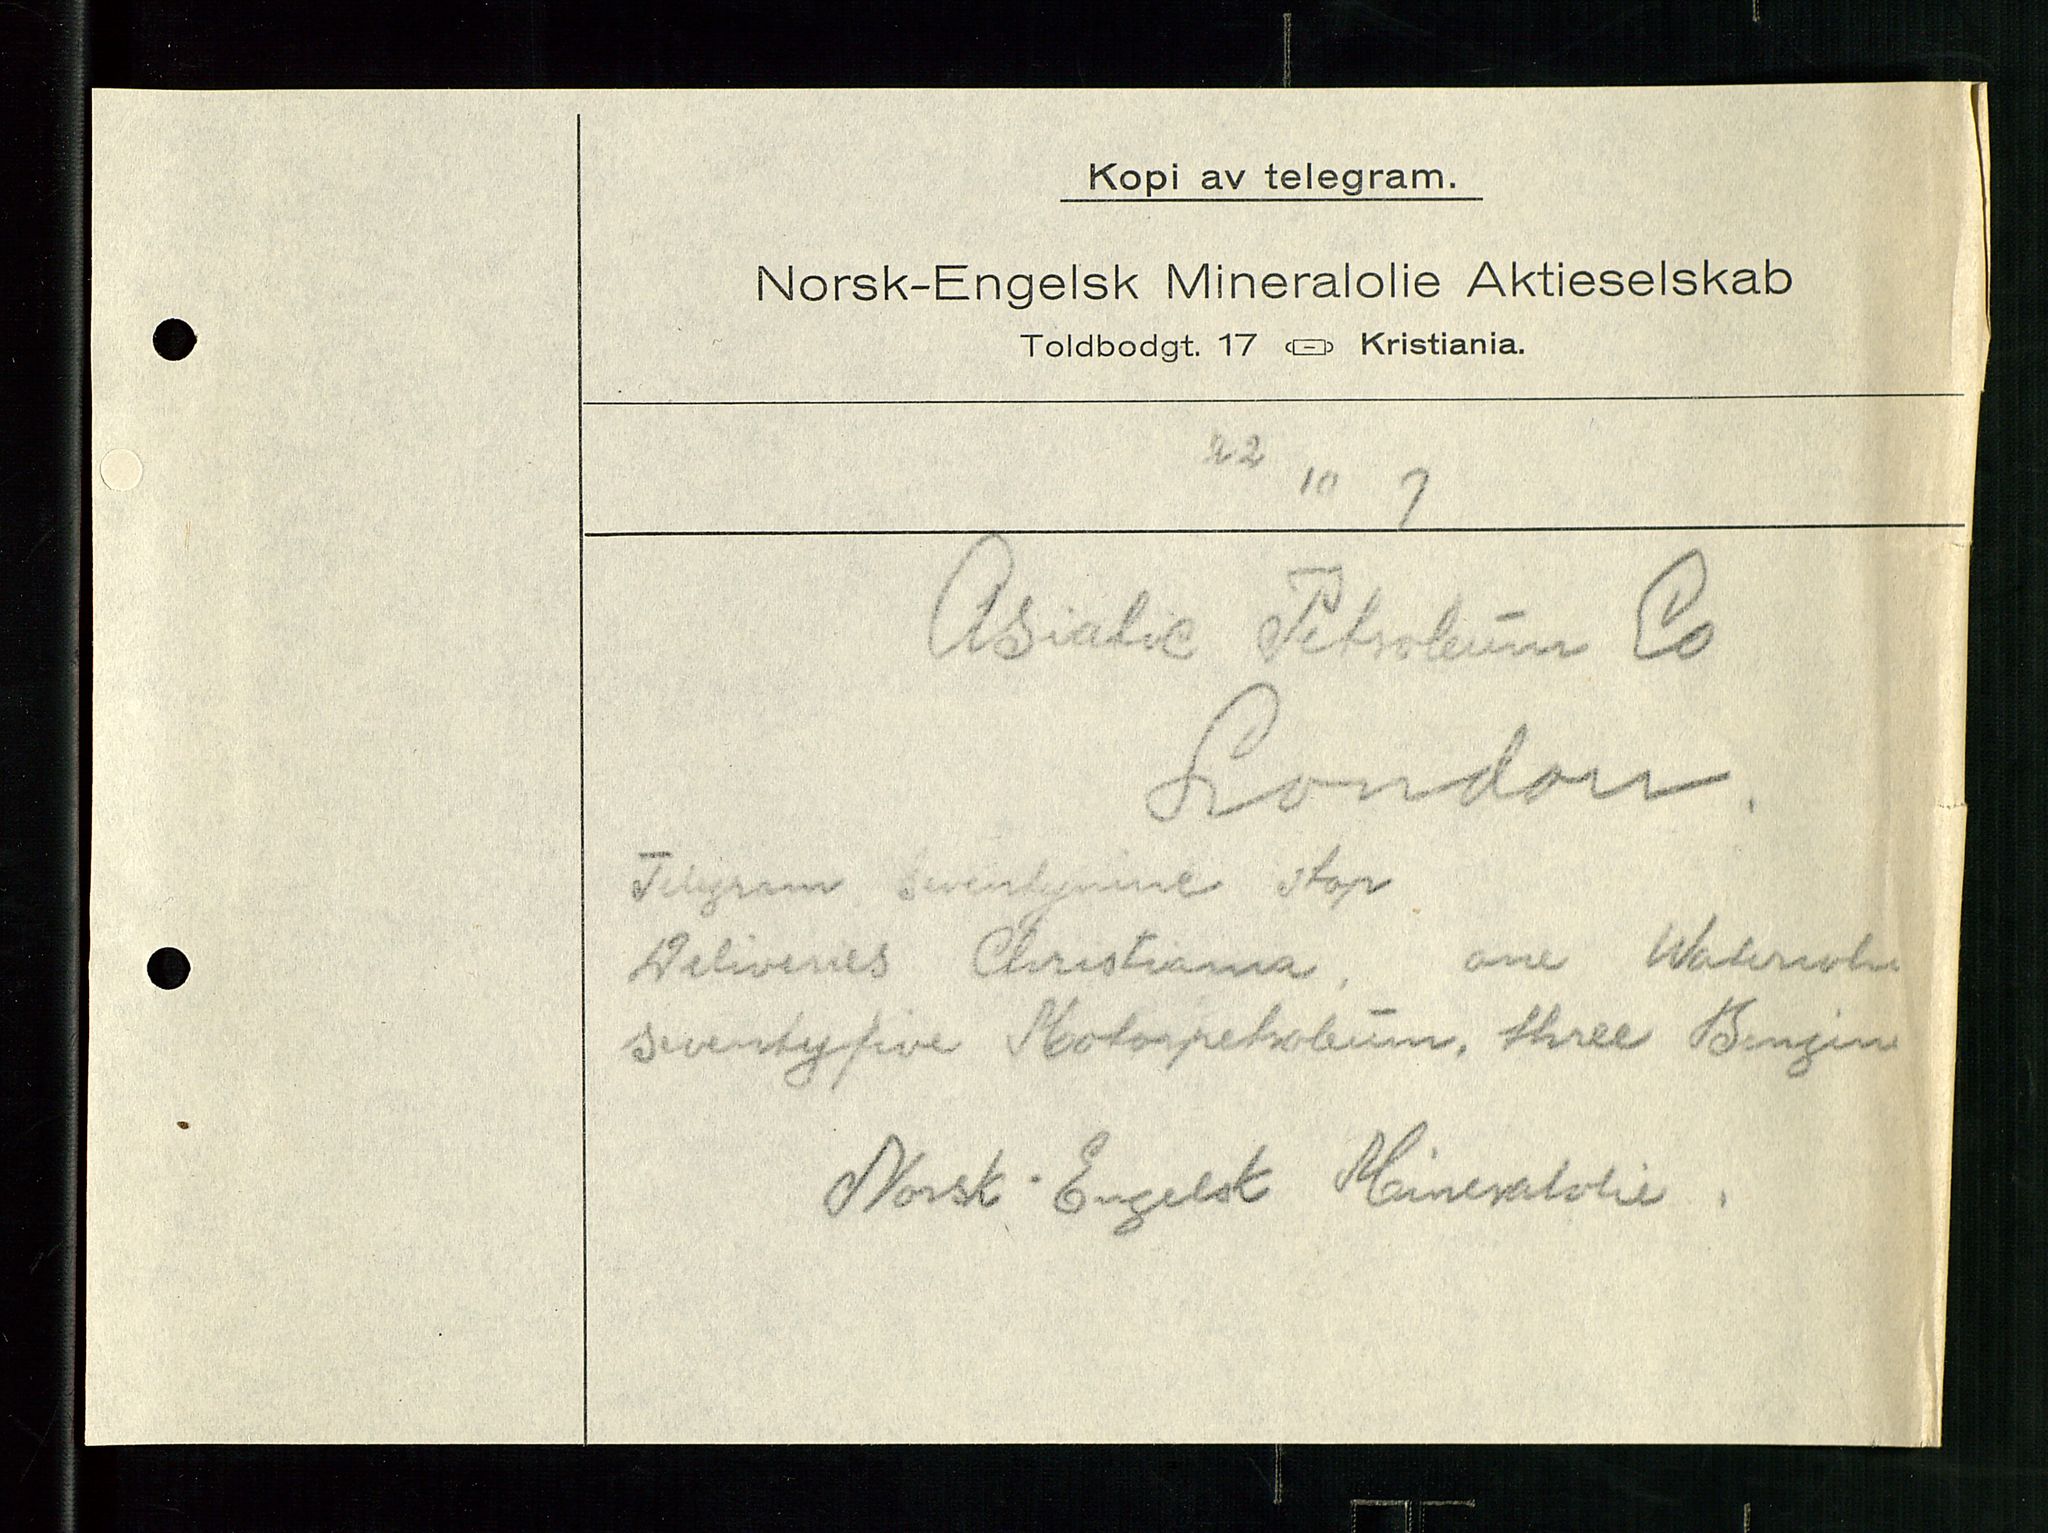 Kopi av telegram.
Norsk-Engelsk Mineralolie Aktieselskab
Toldbodgt. 17 Kristiania.
22 10 7
Asiatic Petroleum Co
London.
Telegram seventynine stop
Deliveries Christiania, one
seventyfive Motorpetroleum, three Benzine
Norsk-Engelsk Mineralolie.